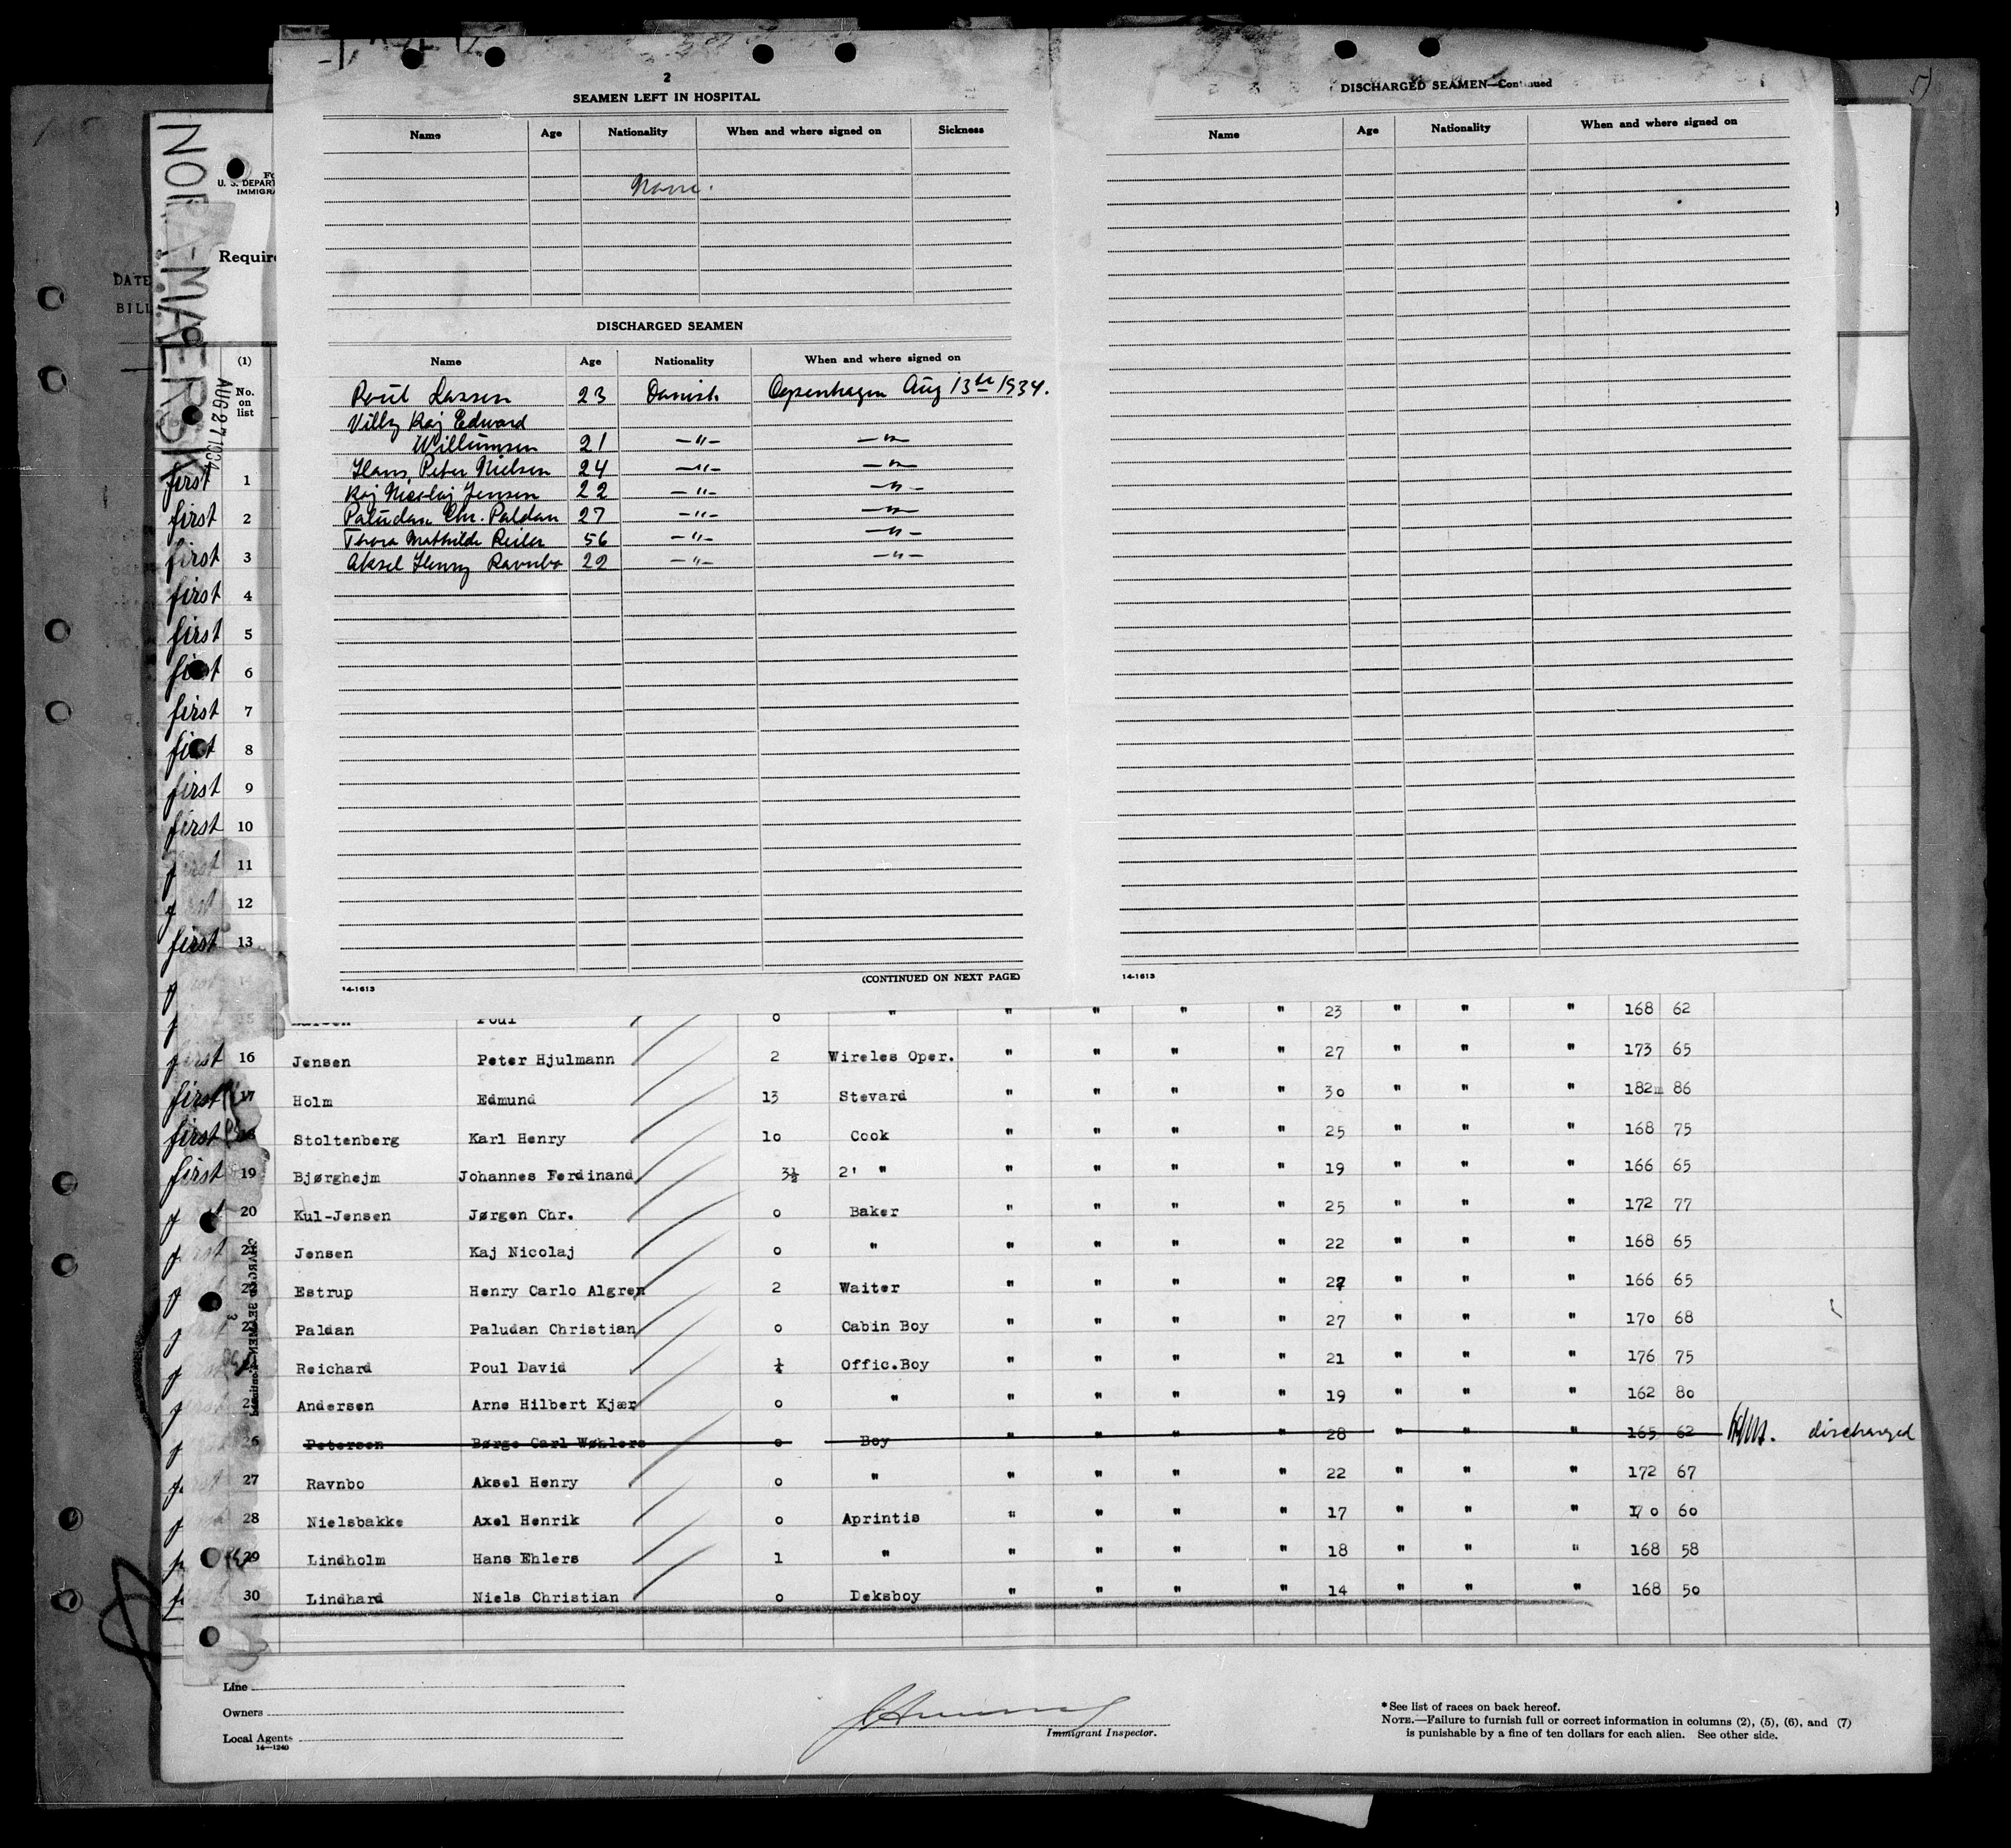 2
SEAMEN LEFT IN HOSPITAL
Name Age Nationality When and where signed on Sickness
None.
DISCHARGED SEAMEN
Name Age Nationality When and where signed on
Poul Lassen 23 Danish. Copenhagen Aug 13th 1934.
Villy Kaj Edward
Willumsen 21 —"— —"—
Hans Peter Nielsen 24 —"— —"—
Kaj Nicolaj Jensen 22 —"— —"—
Paludan Chr. Paldan 27 —"— —"—
Thora Mathilde 56 —"— —"—
Aksel Henry Ravnbo 22 —"— —"—
(CONTINUED ON NEXT PAGE)
14-1613
DISCHARGED SEAMEN—Continued
Name Age Nationality When and where signed on
14-1613
NORA-MAERSK
AUG 27 1934
U. S. DEPAR
IMMIGRA
Require
DATE
BILL
(1)
No.
on
list
first 1
first 2
first 3
first 4
first 5
first 6
first 7
first 8
first 9
first 10
first 11
12
first 13
15 Poul o " " " " " 23 " " " 168 62
first 16 Jensen Peter Hjulmann 2 Wireles Oper. " " " " 27 " " " 173 65
first 17 Holm Edmund 13 Stevard " " " " 30 " " " 182 86
first 18 Stoltenberg Karl Henry 1o Cook " " " " 25 " " " 168 75
first 19 Bjørghejm Johannes Ferdinand 3½ 2' " " " " " 19 " " " 166 65
20 Kul-Jensen Jørgen Chr. o Baker " " " " 25 " " " 172 77
21 Jensen Kaj Nicolaj o " " " " " 22 " " " 168 65
22 Estrup Henry Carlo Algren 2 Waiter " " " " 27 " " " 166 65
23 Paldan Paludan Christian o Cabin Boy " " " " 27 " " " 170 68
Reichard Poul David ¼ Offic.Boy " " " " 21 " " " 176 75
25 Andersen Arne Hilbert Kjær o " " " " " 19 " " " 162 80
26 Petersen Børge Carl Wøhlers o Boy " " " " 28 " " " 165 62 discharged
27 Ravnbo Aksel Henry o " " " " " 22 " " " 172 67
28 Nielsbakke Axel Henrik o Aprintis " " " " 17 " " " 170 60
29 Lindholm Hans Ehlers 1 " " " " " 18 " " " 168 58
30 Lindhard Niels Christian o Deksboy " " " " 14 " " " 168 50
Line
Owners
Local Agents
14—1240
Immigrant Inspector.
* See list of races on back hereof.
NOTE.—Failure to furnish full or correct information in columns (2), (5), (6), and (7)
is punishable by a fine of ten dollars for each alien. See other side.